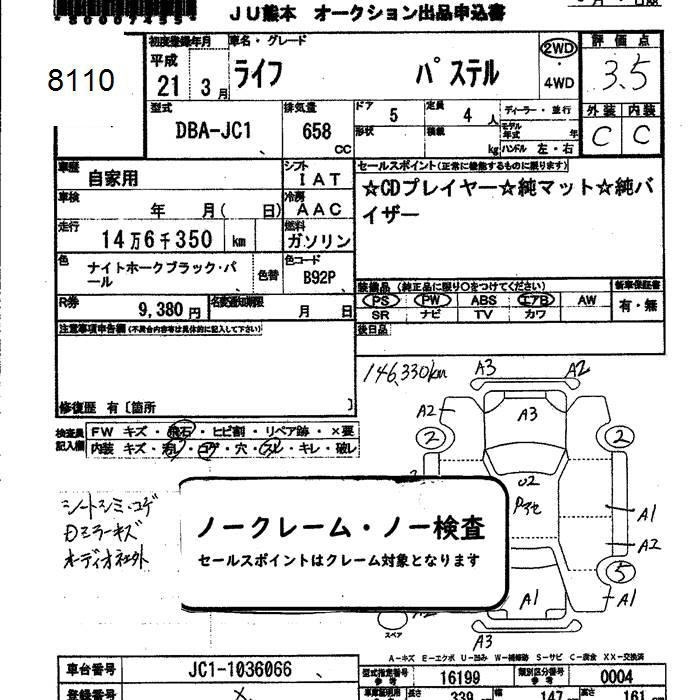 50007455
JU熊本 オークション出品申込書
8110
初度登録年月 車名・グレード 評価点
平成 21 3月 ライフ パステル 2WD ・ 4WD 3.5
型式 排気量 ドア 5 定員 4人 ディーラー・並行 外装 内装
DBA-JC1 658 cc 形状 積載 kg モデル年式 年 ハンドル 左・右 C C
車歴 自家用 シフト IAT セールスポイント(正常に機能するものに限ります)
車検 年 月( 日) 冷房 AAC ☆CDプレイヤー☆純マット☆純バイザー
走行 14万6千350 km 燃料 ガソリン
色 ナイトホークブラック・パール 色替 色コード B92P 装備品 (純正品に限り○をつけてください) 新車保証書
R券 9,380円 名変通知期限 月 日 PS PW ABS エアB AW 有・無
SR ナビ TV カワ
注意事項申告欄(不具合内容等は具体的に記入して下さい) 後日品
146,330km A3 A2
修復歴 有〔箇所 〕
検査員記入欄 FW キズ・飛石・ヒビ割・リペア跡・×要
内装 キズ・汚レ・コゲ・穴・スレ・キレ・破レ
A2 A3 2 2 U2
シートシミ・コゲ
Dミラーキズ
オーディオ社外
ノークレーム・ノー検査
セールスポイントはクレーム対象となります
A1 A2 5 A1 A1 A3
スペア
A-キズ E-エクボ U-凹み W-補修跡 S-サビ C-腐食 XX-交換済
車台番号 JC1-1036066 型式指定番号 参考 16199 類別区分番号 参考 0004
登録番号 長さ 339 幅 147 高さ 161 cm